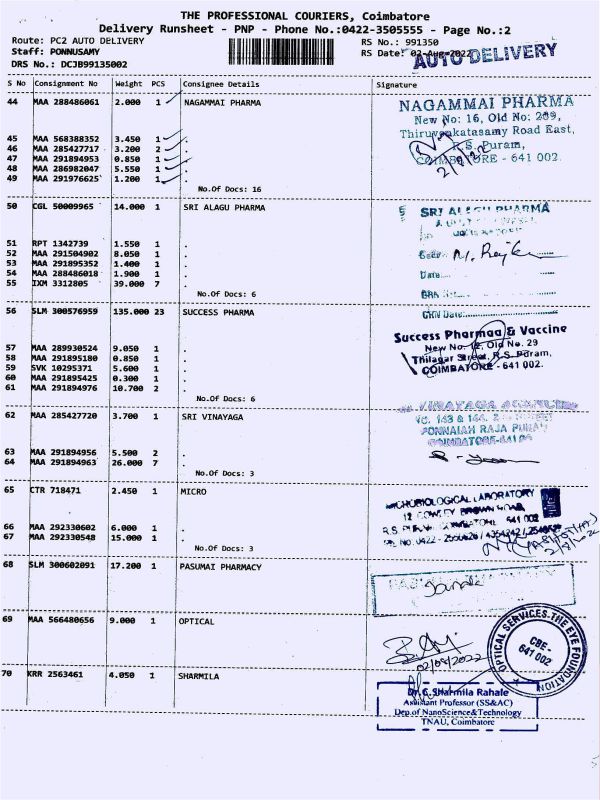 THE PROFESSIONAL COURIERS, Coimbatore
Delivery Runsheet - PNP - Phone No.:0422-3505555 - Page No.:2
Route: PC2 AUTO DELIVERY RS No.: 991350
Staff: PONNUSAMY RS Date: 02-Aug-2022
DRS No.: DCJB99135002 AUTO DELIVERY
S No Consignment No Weight PCS Consignee Details Signature
44 MAA 288486061 2.000 1 NAGAMMAI PHARMA
NAGAMMAI PHARMA
New No: 16, Old No: 209,
Thiruvenkatasamy Road East,
R.S. Puram,
COIMBATORE - 641 002.
2/8/22
45 MAA 568388352 3.450 1 .
46 MAA 285427717 3.200 2 .
47 MAA 291894953 0.850 1 .
48 MAA 286982047 5.550 1 .
49 MAA 291976625 1.200 1 .
No.Of Docs: 16
50 CGL 50009965 14.000 1 SRI ALAGU PHARMA
SRI ALAGU PHARMA
Date
GRN No
GRN Date
51 RPT 1342739 1.550 1 .
52 MAA 291504902 8.050 1 .
53 MAA 291895352 1.400 1 .
54 MAA 288486018 1.900 1 .
55 IXM 3312805 39.000 7 .
No.Of Docs: 6
56 SLM 300576959 135.000 23 SUCCESS PHARMA
Success Pharmaa & Vaccine
New No. 12, Old No. 29
Thilagar Street, R.S. Puram,
COIMBATORE - 641 002.
57 MAA 289930524 9.050 1 .
58 MAA 291895180 0.850 1 .
59 SVK 10295371 5.600 1 .
60 MAA 291895425 0.300 1 .
61 MAA 291894976 10.700 2 .
No.Of Docs: 6
62 MAA 285427720 3.700 1 SRI VINAYAGA
VINAYAGA
PONNAIAH RAJA PURAM
COIMBATORE-641
63 MAA 291894956 5.500 2
64 MAA 291894963 26.000 7
No.Of Docs: 3
65 CTR 718471 2.450 1 MICRO
MICROBIOLOGICAL LABORATORY
12 COWLEY BROWN ROAD,
R.S. PURAM COIMBATORE 641 002
Ph. No: 0422 -
66 MAA 292330602 6.000 1 .
67 MAA 292330548 15.000 1 .
No.Of Docs: 3
68 SLM 300602091 17.200 1 PASUMAI PHARMACY
69 MAA 566480656 9.000 1 OPTICAL
02/08/2022
OPTICAL SERVICES-THE EYE FOUNDATION
CBE -
641 002
70 KRR 2563461 4.050 1 SHARMILA
Dr.C.Sharmila Rahale
Assistant Professor (SS&AC)
Dep.of NanoScience&Technology
TNAU, Coimbatore